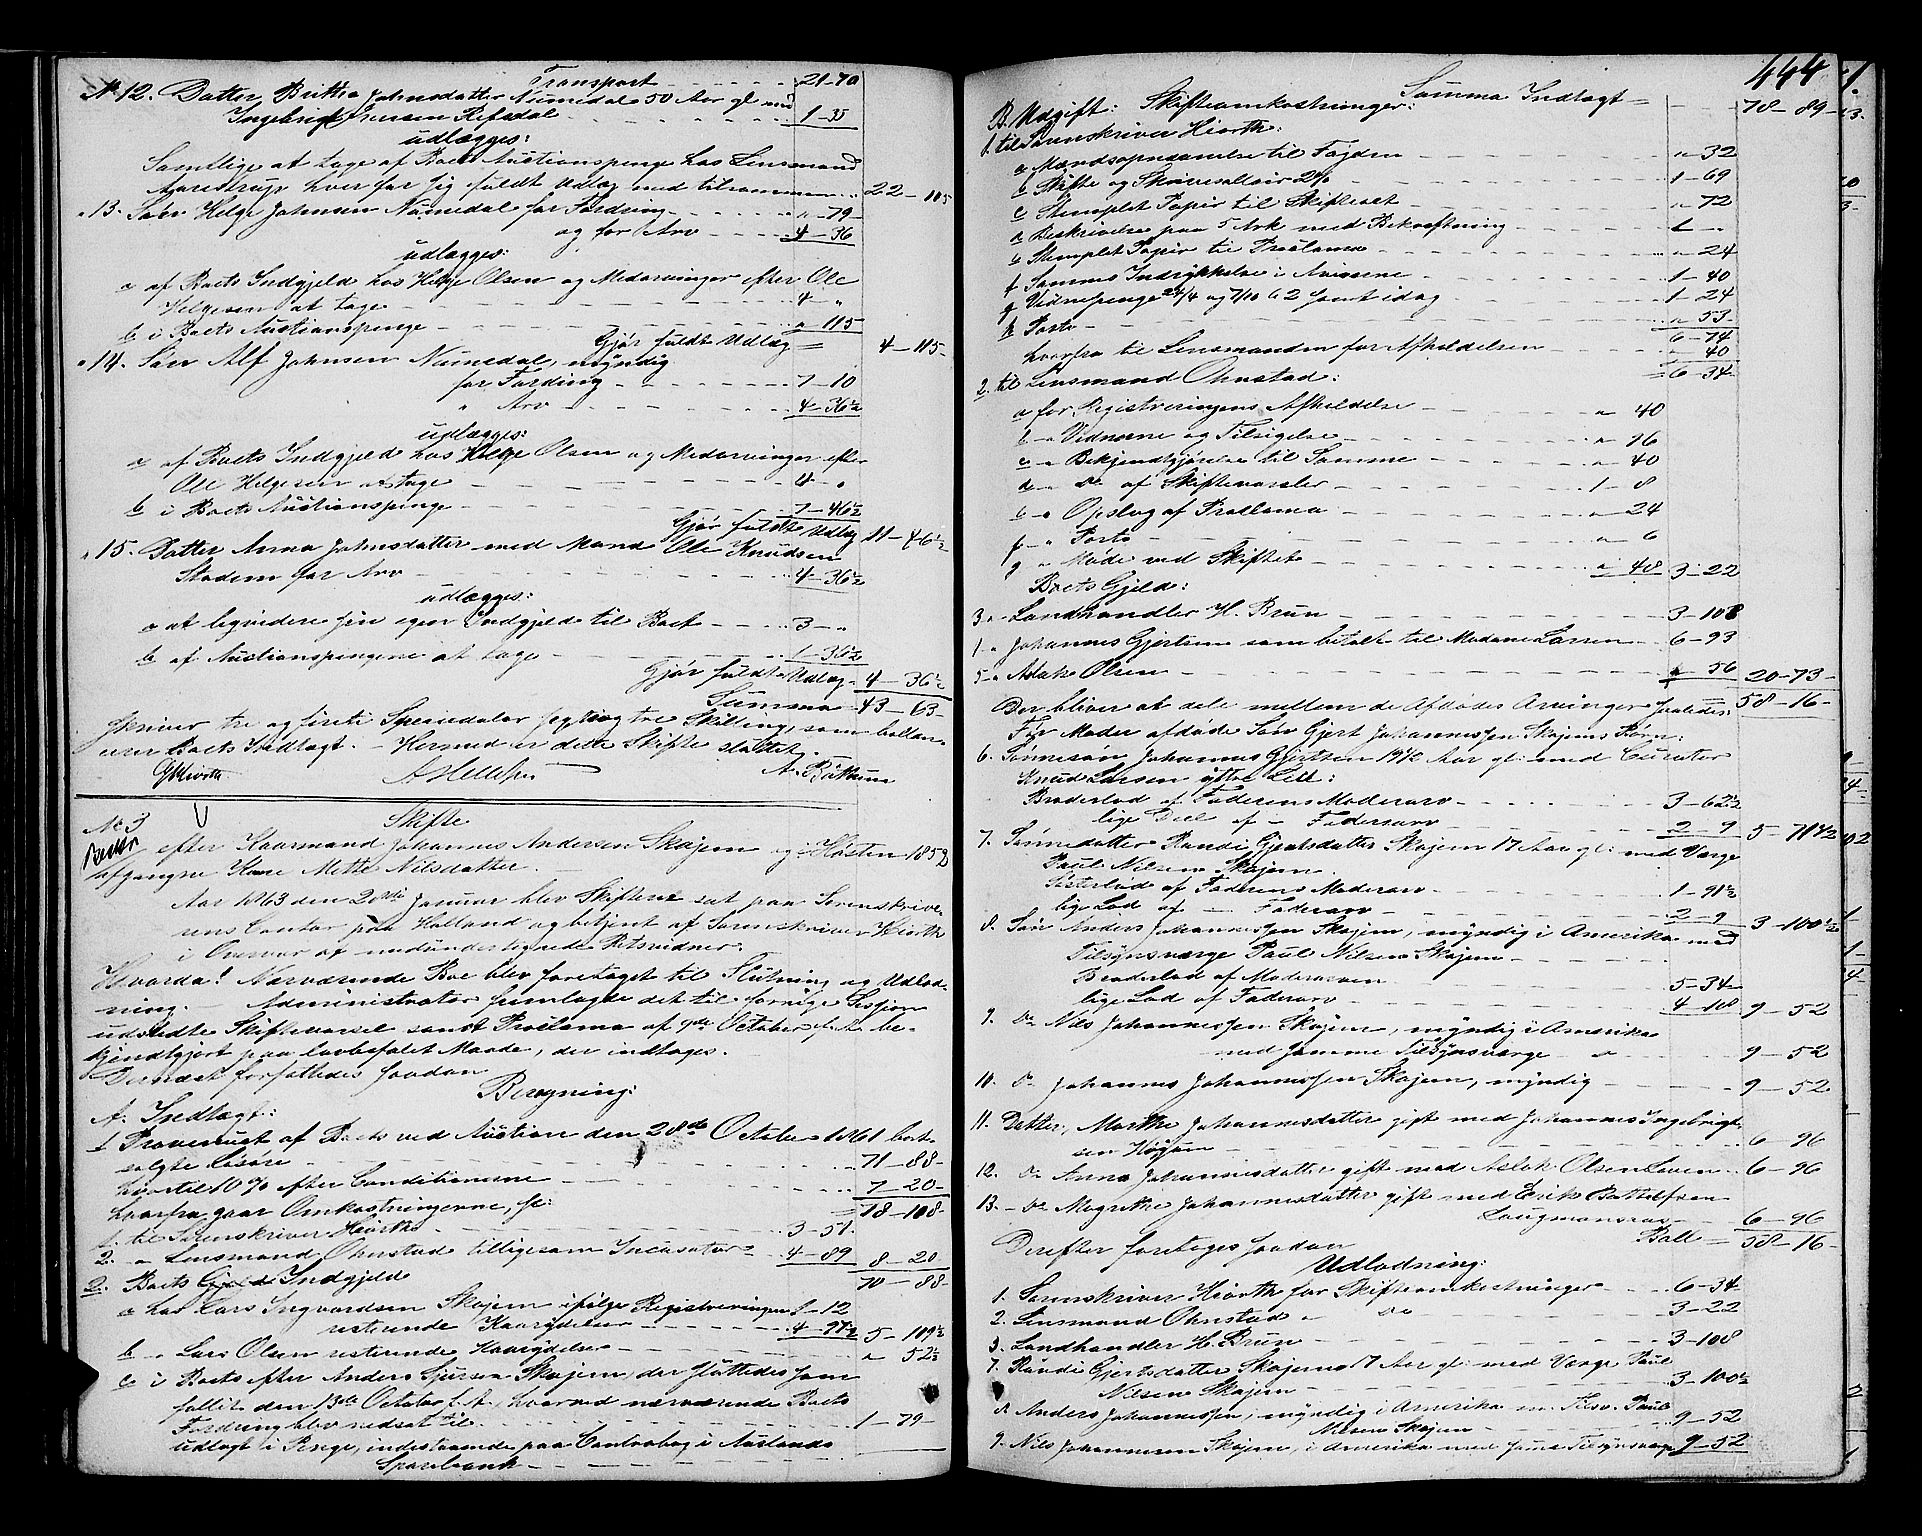 Transport 21-70
No 12. Datter Brithe Johnsdatter Numedal 50 Aar gl. med
Ingebrigt Iversen Refsdal 1-35
udlægges:
Samtlige at tage af Boets Auctionspenge hos Lensmand
Aarestrup hver for sig fuldt Udlæg med tilsammen 22-105
" 13. Søn Helge Johnsen Numedal for Fordring "-79-
og for Arv 4-36
udlægges:
a af Boets Indgjeld hos Helge Olsen og Medarvinger efter Ole
Helgesen at tage 4-"
b i Boets Auctionspenge "-115
Gjør fuldt Udlæg = 4-115-
" 14. Søn Alf Johnsen Numedal, myndig
for Fordring 7-10
" Arv 4-36½
udlægges:
a af Boets Indgjeld hos Helge Olsen og Medarvinger efter
Ole Helgesen at tage 4-"
b i Boets Auctionspenge 7-46½
Gjør fuldt Udlæg 11-46½
" 15. Datter Anna Johnsdatter med Mand Ole Knudsen
Stadem for Arv 4-36½
udlægges:
a at liqvidere sin egen Indgjeld til Boet 3-"
b af Auctionspengene at tage 1-36½
Gjør fuldt Udlæg 4-36½
Summa 43-63-
skriver tre og fireti Speciedaler segti og tre Skilling, som ballan-
cerer Boets Indtægt. - Hermed er dette Skifte sluttet.
GHiorth
No 3
Skifte
efter Kaarmand Johannes Andersen Skajem og i Høsten 1852
afgangne Kone Mette Nilsdatter.
Aar 1863 den 20de Januar blev Skifteret sat paa Sorenskrive-
rens Contor paa Holland og betjent af Sorenskriver Hiorth
i Overvær af medunderskrevne Retsvidner.
Hvorda! Nærværende Boe blev foretaget til Slutning og Udlod-
ning. Administrator fremlagde det til forrige Session
udstedte Skiftevarsel samt Proclama af 7de October f. A. be-
kjendtgjort paa lovbefalet Maade, der indtages.
Dernæst forfattedes saadan
Beregning:
A. Indtægt:
1 Provenuet af Boets ved Auction den 28de October 1861 bort-
solgte Løsøre 71-88-
hvortil 10% efter Conditionerne 7-20-
hvorfra gaar Omkostningerne, sc: 78-108-
1. til Sorenskriver Hiorth 3-51.
2. " Lensmand Ohnstad tilligesom Incassator 4-89 8-20
70-88-
2. Boets Gjeld Indgjeld
a hos Lars Ingvardsen Skajem ifølge Registreringen 1-12
resterende Kaarydelser 4-97½ 5-109½
b " Lars Olsen resterende Kaarydelse " 52½
c i Boet efter Anders Sjursen Skajem, der sluttedes som
fallit den 13de October f. A., hvorved nærværende Boets
Fordring blev nedsat til 1-79-
udlagt i Penge, indestaaende paa Contrabog i Aurlands
Sparebank
444
Summa Indtægt = 78-89-
B. Udgift: Skifteomkostninger:
1. til Sorenskriver Hiorth:
a Mandsopnævnelse til Fogden "-32
b Skifte og Skriversallair 2% 1-69
c Stemplet Papir til Skiftet "-72
d Beskrivelse paa 5 Ark med Bekræftning 1-"
e Stemplet Papir til Proclama "-24
f Sammes Indrykkelse i Aviserne 1-40
g Vidnepenge 24/4 og 7/10 62 samt idag 1-24
h Porto "-53-
6-74
hvorfra til Lensmanden for Afholdelsen "-40
=6-34-
2. til Lensmand Ohnstad:
a for Registreringens Afholdelse "-40
b " Vidnerne og Tilsigelse "-16
c " Bekjendtgjørelse til Samme "-40
d " do af Skiftevarsler 1-8
e " Opslag af Proclama "-24
f " Porto "-6
g " Møde ved Skiftet "-48 3-22
Boets Gjeld:
3 " Landhandler H. Brun 3-108
1 " Johannes Gjertsen som betalt til Madame Larsen 6-93
5 " Aslak Olsen "-56 20-73-
Der bliver at dele mellem de Afdødes Arvinger saaledes: 58-16-
Før Moder afdøde Søn Gjert Johannessen Skajems Børn:
6. Sønnesøn Johannes Gjertsen 19½ Aar gl. med Curator
Knud Larsen ytre Lie:
Broderlod af Faderens Moderarv 3-62½
lige Deel af " Faderarv 2-9 5-71½
7. Sønnedatter Randi Gjertsdatter Skajem 17 Aar gl. med Værge
Paul Nilsen Skajem
Søsterlod af Faderens Moderarv 1-91½
lige Lod af " Faderarv 2-9 3-100½
8. Søn Anders Johannessen Skajem, myndig i Amerika med
Tilsynsværge Paul Nilsen Skajem
Broderlod af Moderarven 5-34-
lige Lod af Faderarv 4-18 9-52
9. do Nils Johannessen Skajem, myndig i Amerika
med samme Tilsynsværge 9-52
10. do Johannes Johannessen Skajem, myndig 9-52
11. Datter, Marthe Johannesdatter gift med Johannes Ingebrigt-
sen 6-96
12. do Anna Johannesdatter gift med Aslak Olsen Loven 6-96
13. do Magrethe Johannesdatter gift med Erik Botolfsen
6-96
Ball = 58-16-
Derefter foretoges saadan
Udlodning:
1. Sorenskriver Hiorth for Skifteomkostninger 6-34-
2. Lensmand Ohnstad " do 3-22
3. Landhandler H. Brun 3-108
7. Randi Gjertsdatter Skajem 17 Aar gl. med Værge Paul
Nilsen Skajem 3-100½
8 Anders Johannessen, myndig i Amerika m. Tilsv. Paul
Nilsen Skajem 9-52
9. Nils Johannesen Skajem, i Amerika med samme Tilsynsværge 9-52